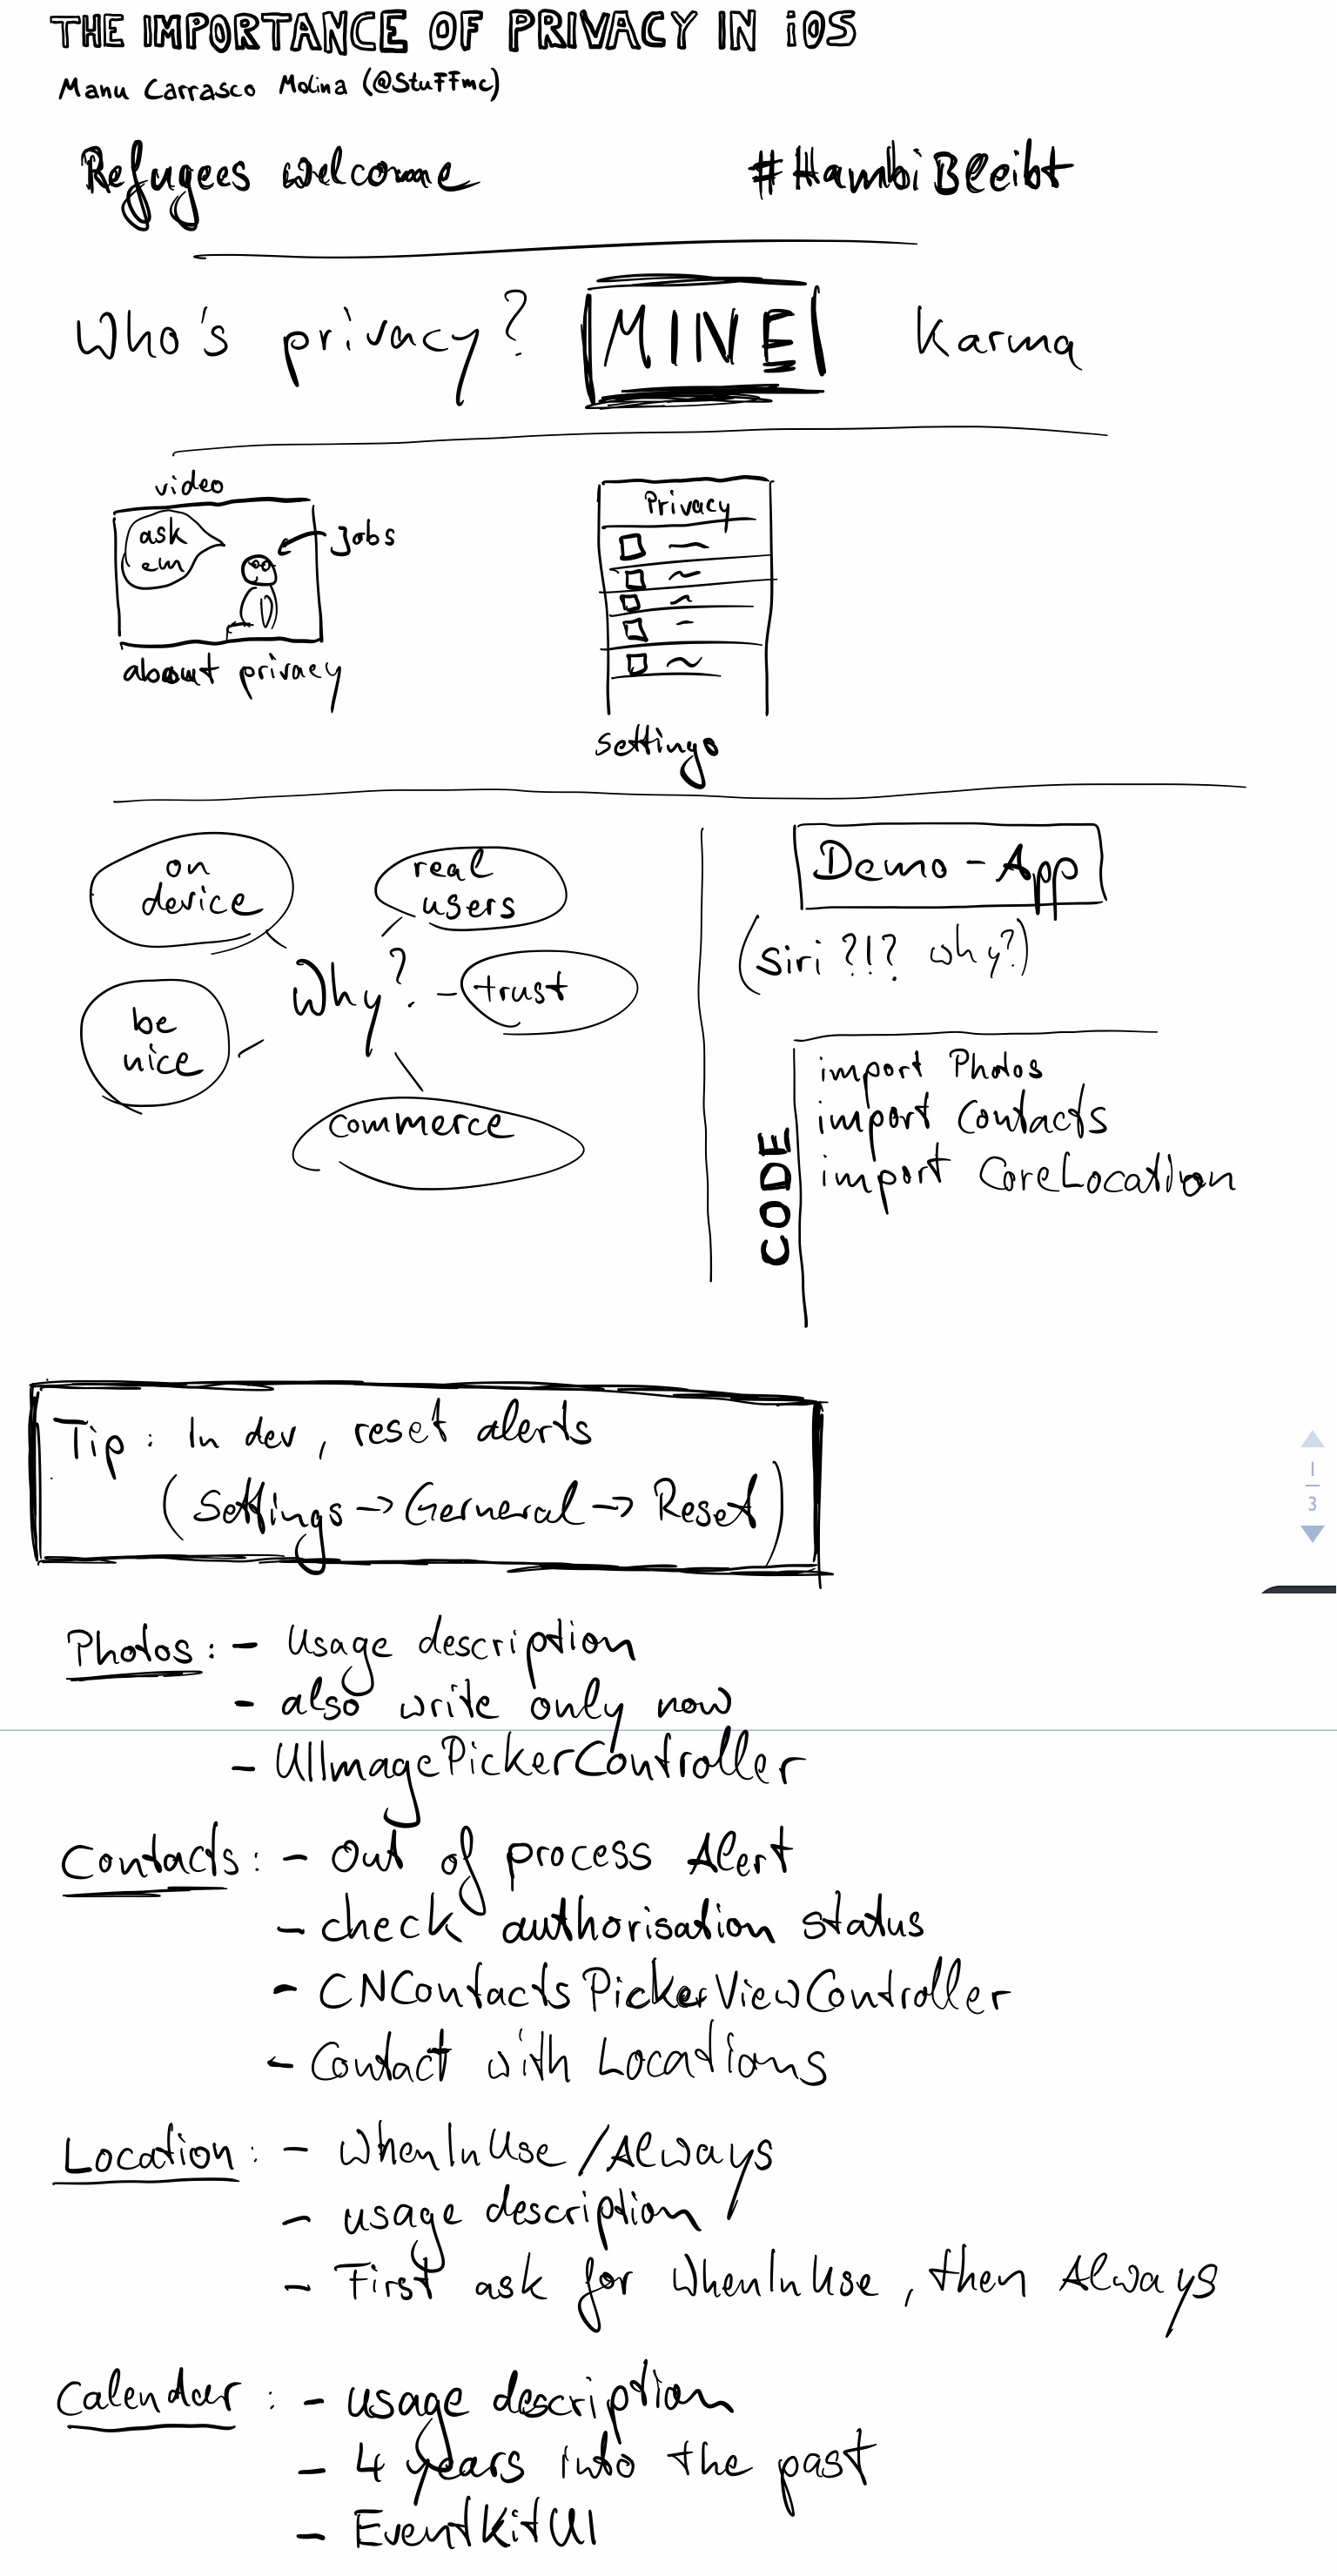 THE IMPORTANCE OF PRIVACY IN iOS
Manu Carrasco Molina (@stuffmc)
Refugees welcome
#HambiBleibt
Who's privacy? MINE Karma
video
ask
em
Jobs
about privacy
Privacy
settings
on
device
real
users
Why?
trust
be
nice
commerce
Demo-App
(Siri ?!? why?)
CODE
import Photos
import Contacts
import CoreLocation
Tip: In dev, reset alerts
(Settings → Gerneral → Reset)
1
3
Photos: - Usage description
- also write only now
- UIImagePickerController
Contacts: - Out of process Alert
- check authorisation status
- CNContactsPickerViewController
- Contact with Locations
Location: - WhenInUse/Always
- usage description
- First ask for WhenInUse, then Always
Calendar: - usage description
- 4 years into the past
- EventKitUI